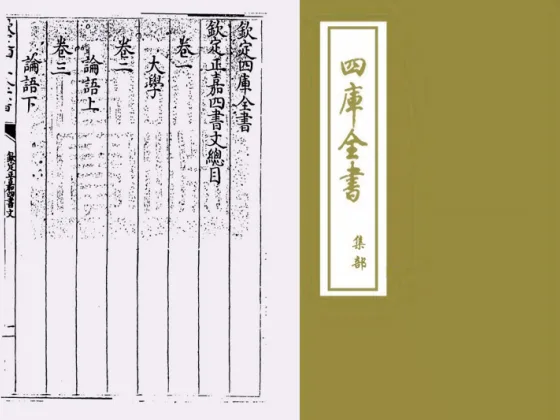 欽定四庫全書
欽定正嘉四書文總目
卷一
大學
卷二
論語上
卷三
論語下
欽定正嘉四書文
四庫全書
集部